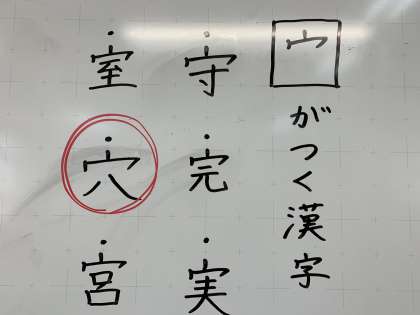 宀がつく漢字
・守
・完
・実
・室
・穴
・宮